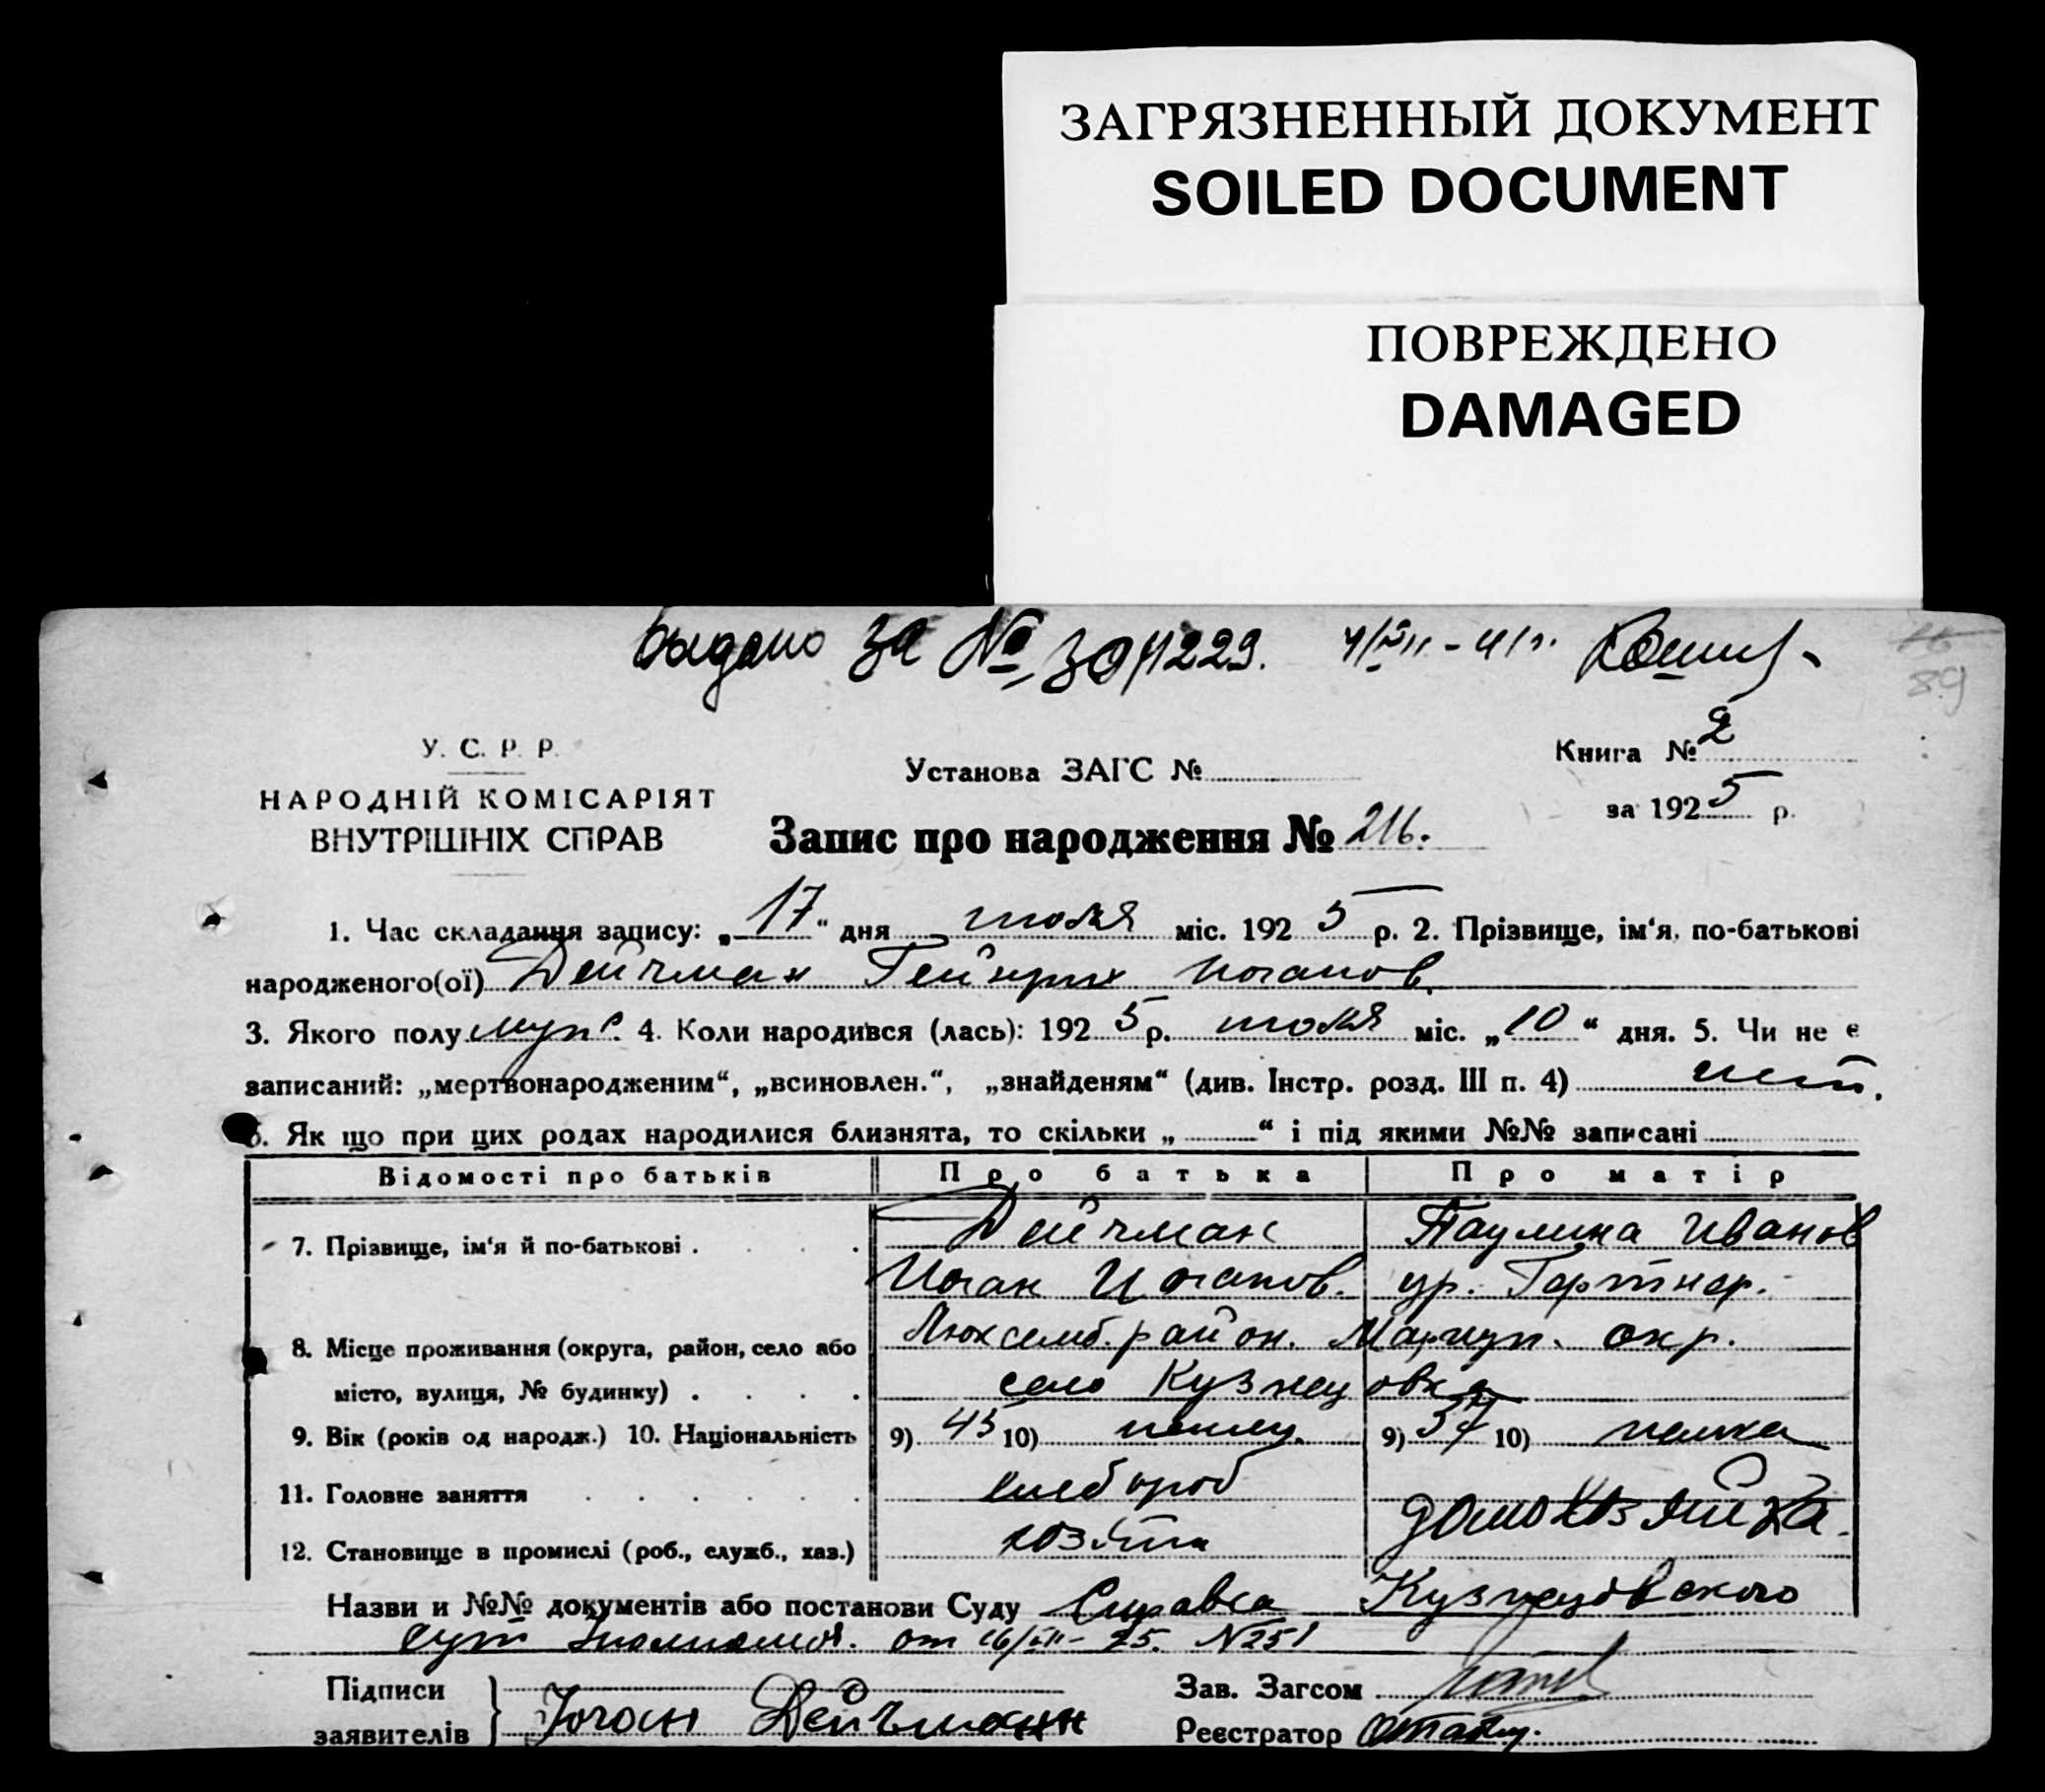 ЗАГРЯЗНЕННЫЙ ДОКУМЕНТ
SOILED DOCUMENT
ПОВРЕЖДЕНО
DAMAGED
Выдано за №
89
У. С. Р. Р.
НАРОДНІЙ КОМІСАРІЯТ
ВНУТРІШНІХ СПРАВ
Установа ЗАГС №
Книга № 2
за 1925 р.
Запис про народження № 216.
1. Час складання запису: „17“ дня июля міс. 1925 р. 2. Прізвище, ім‘я, по-батькові
народженого(ої) Дейчман Гейнрих Иоганов.
3. Якого полу муж. 4. Коли народився (лась): 1925 р. июля міс. „10“ дня. 5. Чи не є
записаний: „мертвонародженим“, „всиновлен.“, „знайденям“ (див. Інстр. розд. III п. 4) нет.
6. Як що при цих родах народилися близнята, то скільки „ “ і під якими №№ записані
Відомості про батьків Про батька Про матір
7. Прізвище, ім‘я й по-батькові . Дейчман Паулина Иванов
Иоган Иоганов. ур. Гертнер.
8. Місце проживання (округа, район, село або Люксемб. район. Мариуп. окр.
місто, вулиця, № будинку) . село Кузнецовка
9. Вік (років од народж.) 10. Національність 9) 45 10) немец. 9) 37 10) немка
11. Головне заняття хлебороб домохозяйка.
12. Становище в промислі (роб., служб., хаз.) хозяин
Назви и №№ документів або постанови Суду Справка Кузнецовского
от 16/VII-25. N251
Підписи
заявителів } Иоган Дейчманн
Зав. Загсом
Реєстратор